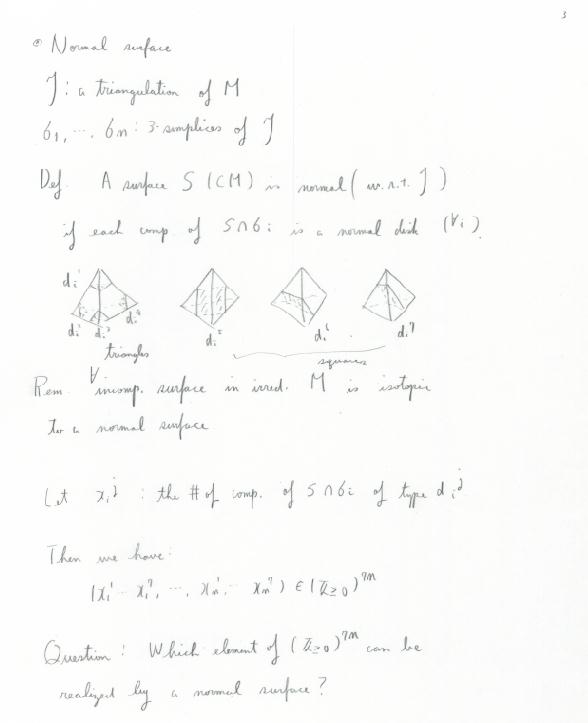 3
◎ Normal surface
J : a triangulation of M
σ1, ‥, σn : 3-simplices of J
Def. A surface S (⊂M) is normal (w.r.t. J)
if each comp of S∩σi is a normal disk (∀i).
di¹
di² di³ di⁴ di⁵ di⁶ di⁷
triangles
squares
Rem. ∀incomp. surface in irred. M is isotopic
to a normal surface
Let xi^j : the # of comp. of S∩σi of type di^j
Then we have:
(x1¹ ‥ x1⁷, ‥, xn¹, ‥ xn⁷) ∈ (ℤ≥0)^7n
Question : Which element of (ℤ≥0)^7n can be
realized by a normal surface?